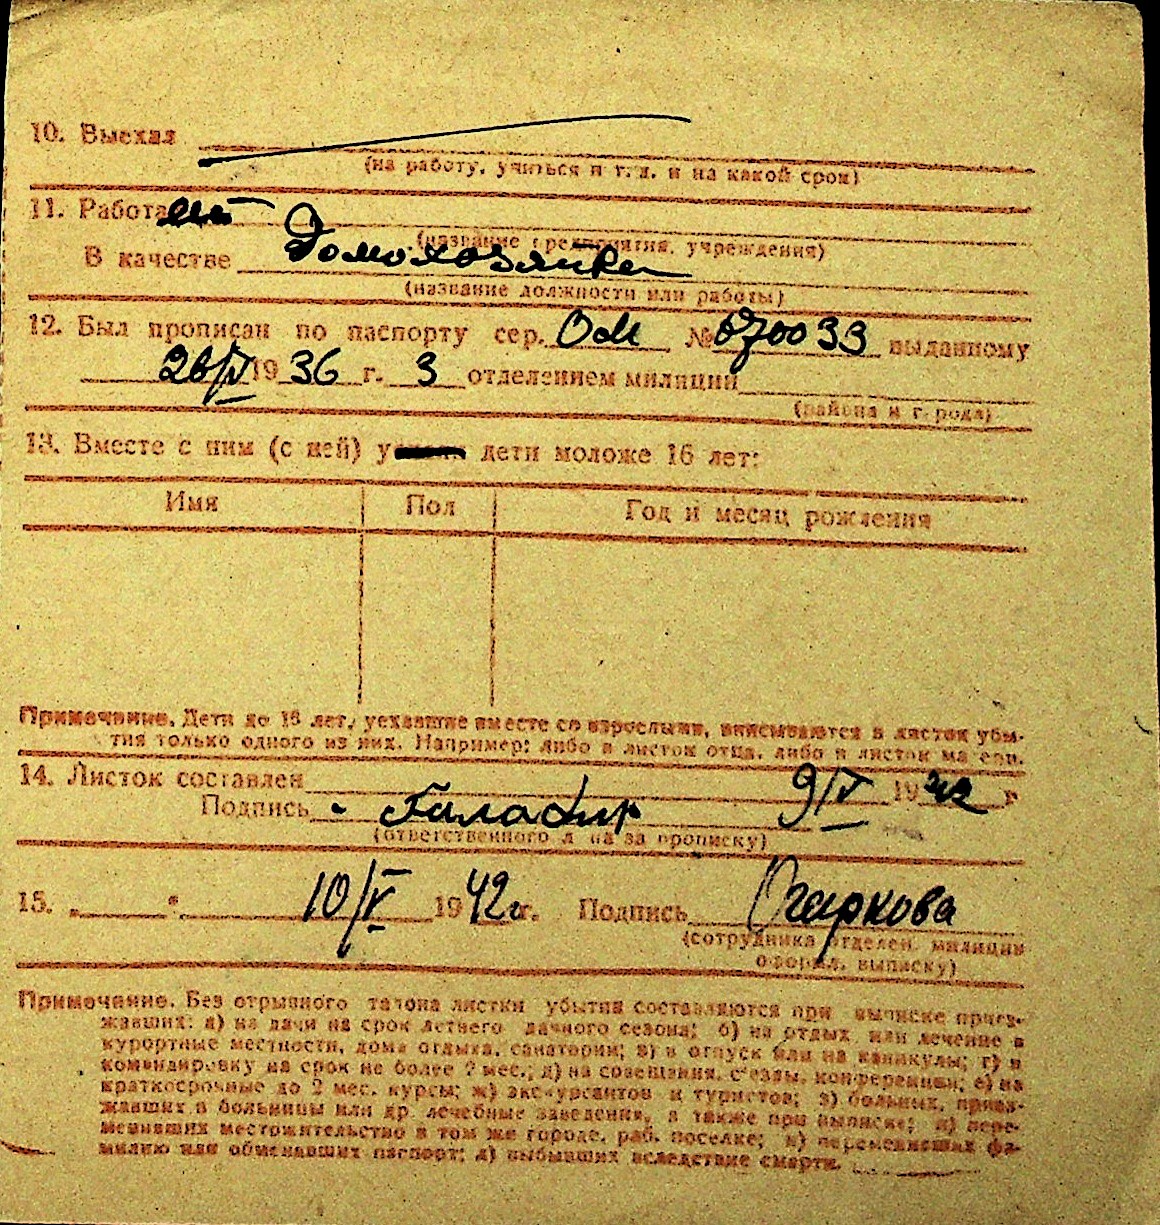 10. Выехал
(на работу, учиться и т. д. и на какой срок)
11. Работа
(название предприятия, учреждения)
В качестве домохозяйка
(название должности или работы)
12. Был прописан по паспорту сер. ОМ № 670033 выданному
26/V 1936 г. 3 отделением милиции
(района и города)
13. Вместе с ним (с ней) дети моложе 16 лет:
Имя Пол Год и месяц рождения
Примечание. Дети до 16 лет, уехавшие вместе со взрослыми, вписываются в листок убы-
тия только одного из них. Например: либо в листок отца, либо в листок матери.
14. Листок составлен 9/V 1942 г.
Подпись
(ответственного лица за прописку)
15. „ “ 10/V 1942 г. Подпись Огаркова
(сотрудника отделен. милиции
оформл. выписку)
Примечание. Без отрывного талона листки убытия составляются при выписке приез-
жавших: а) на дачи на срок летнего дачного сезона; б) на отдых или лечение в
курортные местности, дома отдыха, санатории; в) в отпуск или на каникулы; г) в
командировку на срок не более 2 мес.; д) на совещания, съезды, конференции; е) на
краткосрочные до 2 мес. курсы; ж) экскурсантов и туристов; з) больных, приез-
жавших в больницы или др. лечебные заведения, а также при выписке; и) пере-
менивших местожительство в том же городе, раб. поселке; к) переменивших фа-
милию или обменявших паспорт; л) выбывших вследствие смерти.